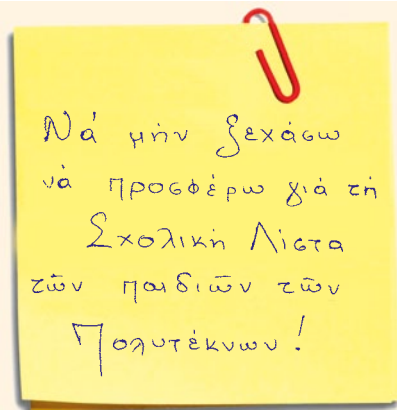 Νά μήν ξεχάσω
νά προσφέρω γιά τή
Σχολική Λίστα
τῶν παιδιῶν τῶν
Πολυτέκνων!